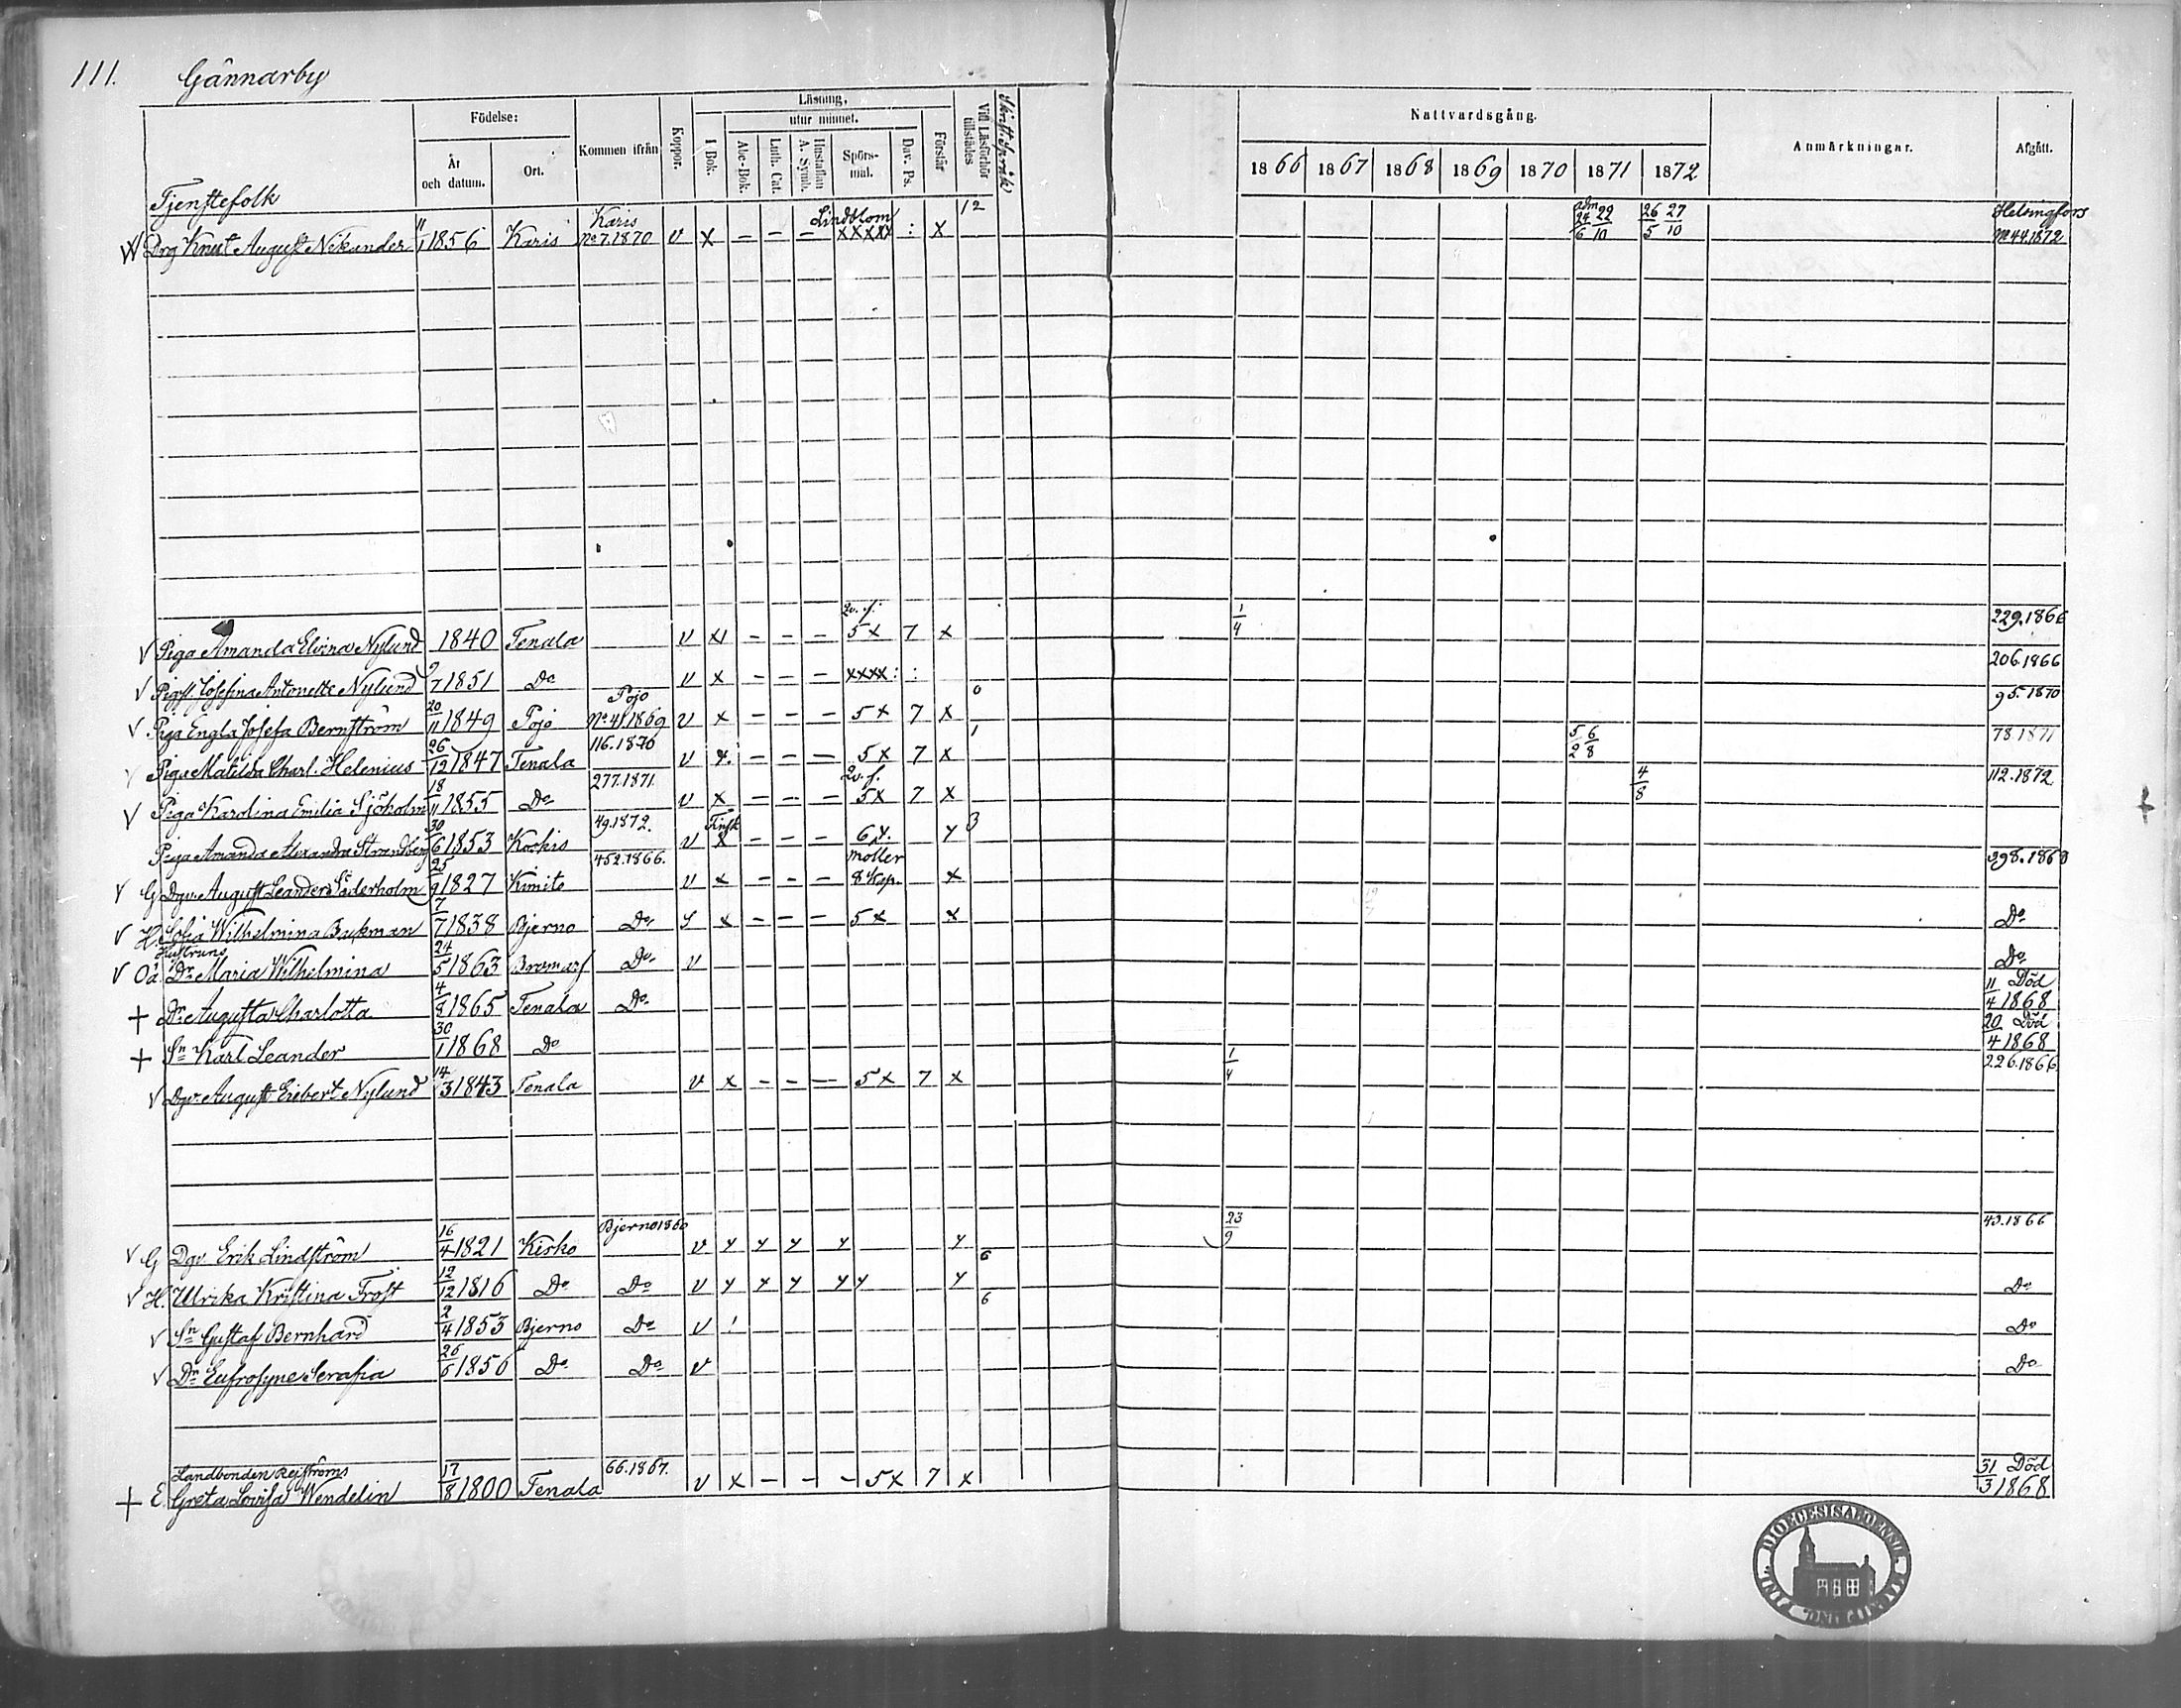 111. Gännarby
Födelse: Läsning, Nattvardsgång.
År och datum. Ort. Kommen ifrån Koppor. I Bok. utur minnet. Abc-Bok. Luth. Cat. Hustaflan A. Symb. Spörsmål. Dav. Ps. Förstår Vill Läsförhör tillstädes Skrift. Språk 1866 1867 1868 1869 1870 1871 1872 Anmärkningar. Afgått.
Tjenstefolk
Drg Knut August Nikander 11/1 1856 Karis Karis No 7.1870 v x – – – Lindblom xxxxx : x 12 adm 24/6 22/10 26/5 27/10 Helsingfors No 44.1872
v Piga Amanda Elvina Nylund 1840 Tenala v x – – – 2v. f. 5x 7 x 1/4 229.1866
v Josefina Antonette Nylund 9/7 1851 Do v x – – – xxxx: : 206.1866
v Piga Engla Josefa Bernström 20/11 1849 Pojo Pojo No 41 1869 v x – – – 5x 7 x 0 95.1870
v Piga Matilda Charl. Helenius 26/12 1847 Tenala 116.1870 v x – – – 5x 7 x 1 5/2 6/8 78 1871
v Piga Karolina Emilia Sjöholm 18/11 1855 Do 277.1871 v x – – – 2v. f. 5x 7 x 4/8 112.1872
Piga Amanda Alexandra Strandberg 30/6 1853 Koskis 49.1872. v Finsk x – – – 6 y. y 3
v G Dgv. August Leander Söderholm 25/9 1827 Kimito 452.1866. v x – – – Möller 8 Kap. x 398.1868
v H. Sofia Wilhelmina Backman 7/7 1838 Bjerno Do S x – – – 5x x Do
v Oä. Hustruns Dr Maria Wilhelmina 24/5 1863 Bromarf Do v Do
+ Dr Augusta Charlotta 4/8 1865 Tenala Do 11/4 Död 1868
+ Sn Karl Leander 30/1 1868 Do 20/4 Död 1868
v Dgv. August Eibert Nylund 14/3 1843 Tenala v x – – – 5x 7 x 1/4 226.1866
v G Dgv Erik Lindström 16/4 1821 Kisko Bjerno 1860 v y y y y y 6 23/9 43.1866
v H. Ulrika Kristina Frost 12/12 1816 Do Do v y y y yy y 6 Do
v Sn Gustaf Bernhard 2/4 1853 Bjerno Do v ! Do
v Dr Eufrosyne Serafia 26/6 1856 Do Do v Do
Landbonden
+ E. Greta Lovisa Wendelin 17/8 1800 Tenala 66.1867. v x – – – 5x 7 x 31/3 Död 1868